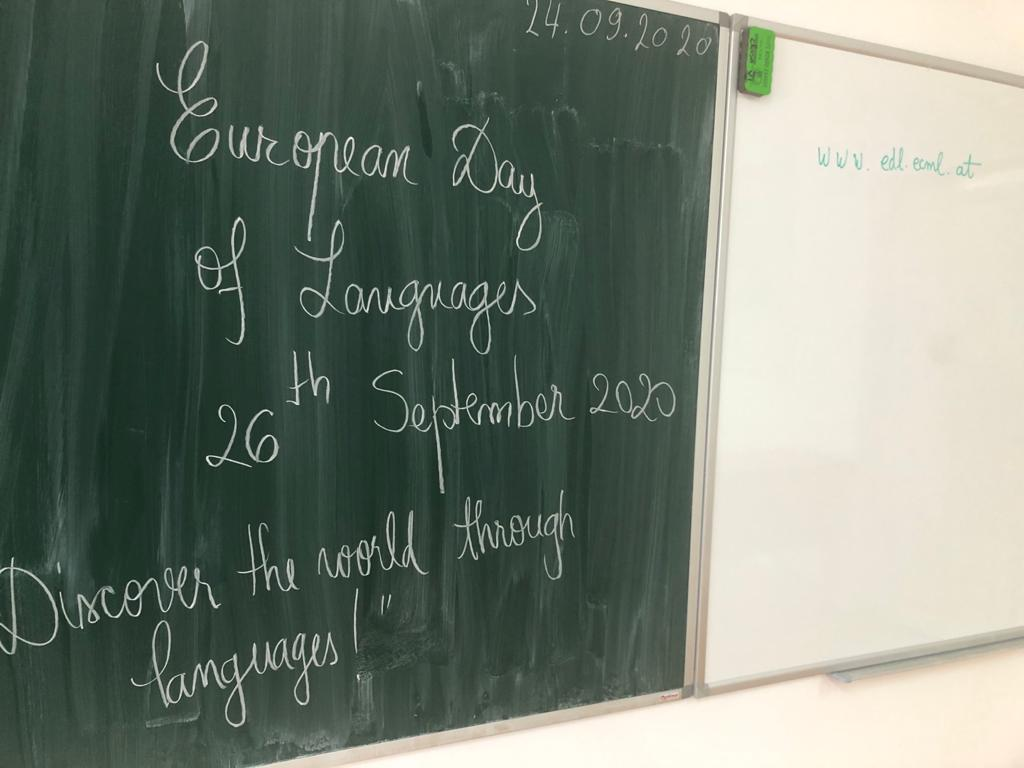 24.09.2020
European Day
of Languages
26th September 2020
Discover the world through
languages!"
www.edl.ecml.at